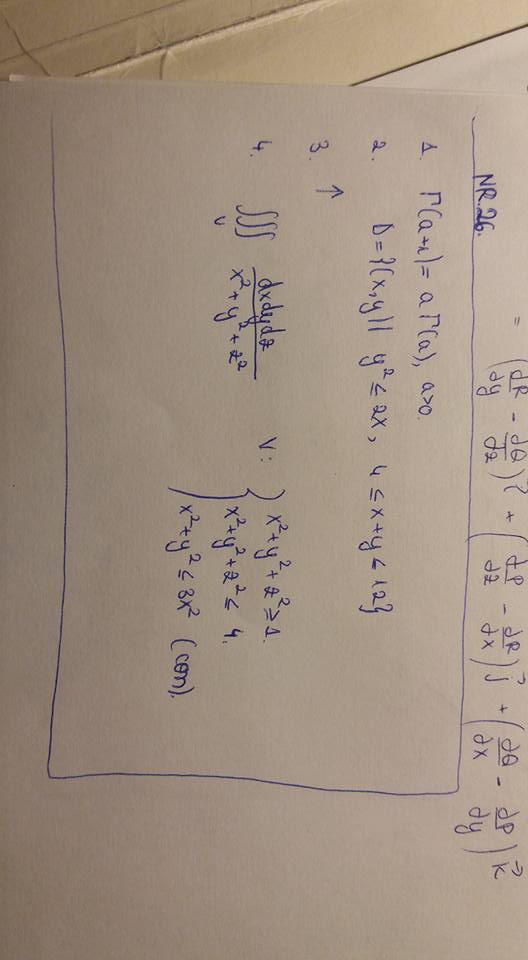 = (dR/dy - dQ/dz) i⃗ + (dP/dz - dR/dx) j⃗ + (dQ/dx - dP/dy) k⃗
NR. 26.
1. Γ(a+1) = aΓ(a), a>0.
2. D = {(x,y) | y² ≤ 2x, 4 ≤ x+y ≤ 12}
3. ↑
4. ∭_V dxdydz/(x²+y²+z²) V: { x²+y²+z² ≥ 1.
x²+y²+z² ≤ 4.
x²+y² ≤ 3x² (con).